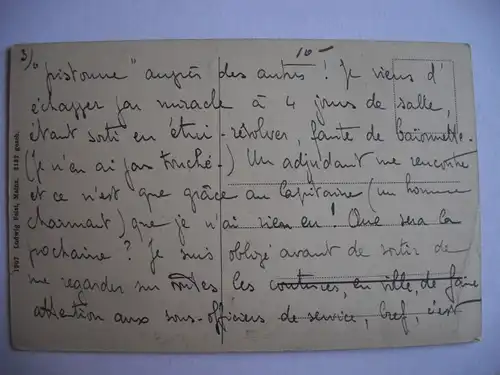 3)
10-
"pistonne" auprès des autres ! Je viens d'
échapper par miracle à 4 jours de salle,
étant sorti en étui-révolver, faute de baïonnette.
(je n'en ai pas touché.) Un adjudant me rencontre
et ce n'est que grâce au Capitaine (un homme
charmant) que je n'ai rien eu ! Que sera la
prochaine ? Je suis obligé avant de sortir de
me regarder sur toutes les coutures, en ville, de faire
attention aux sous-officiers de service, bref, c'est
1907 Ludwig Feist, Mainz.